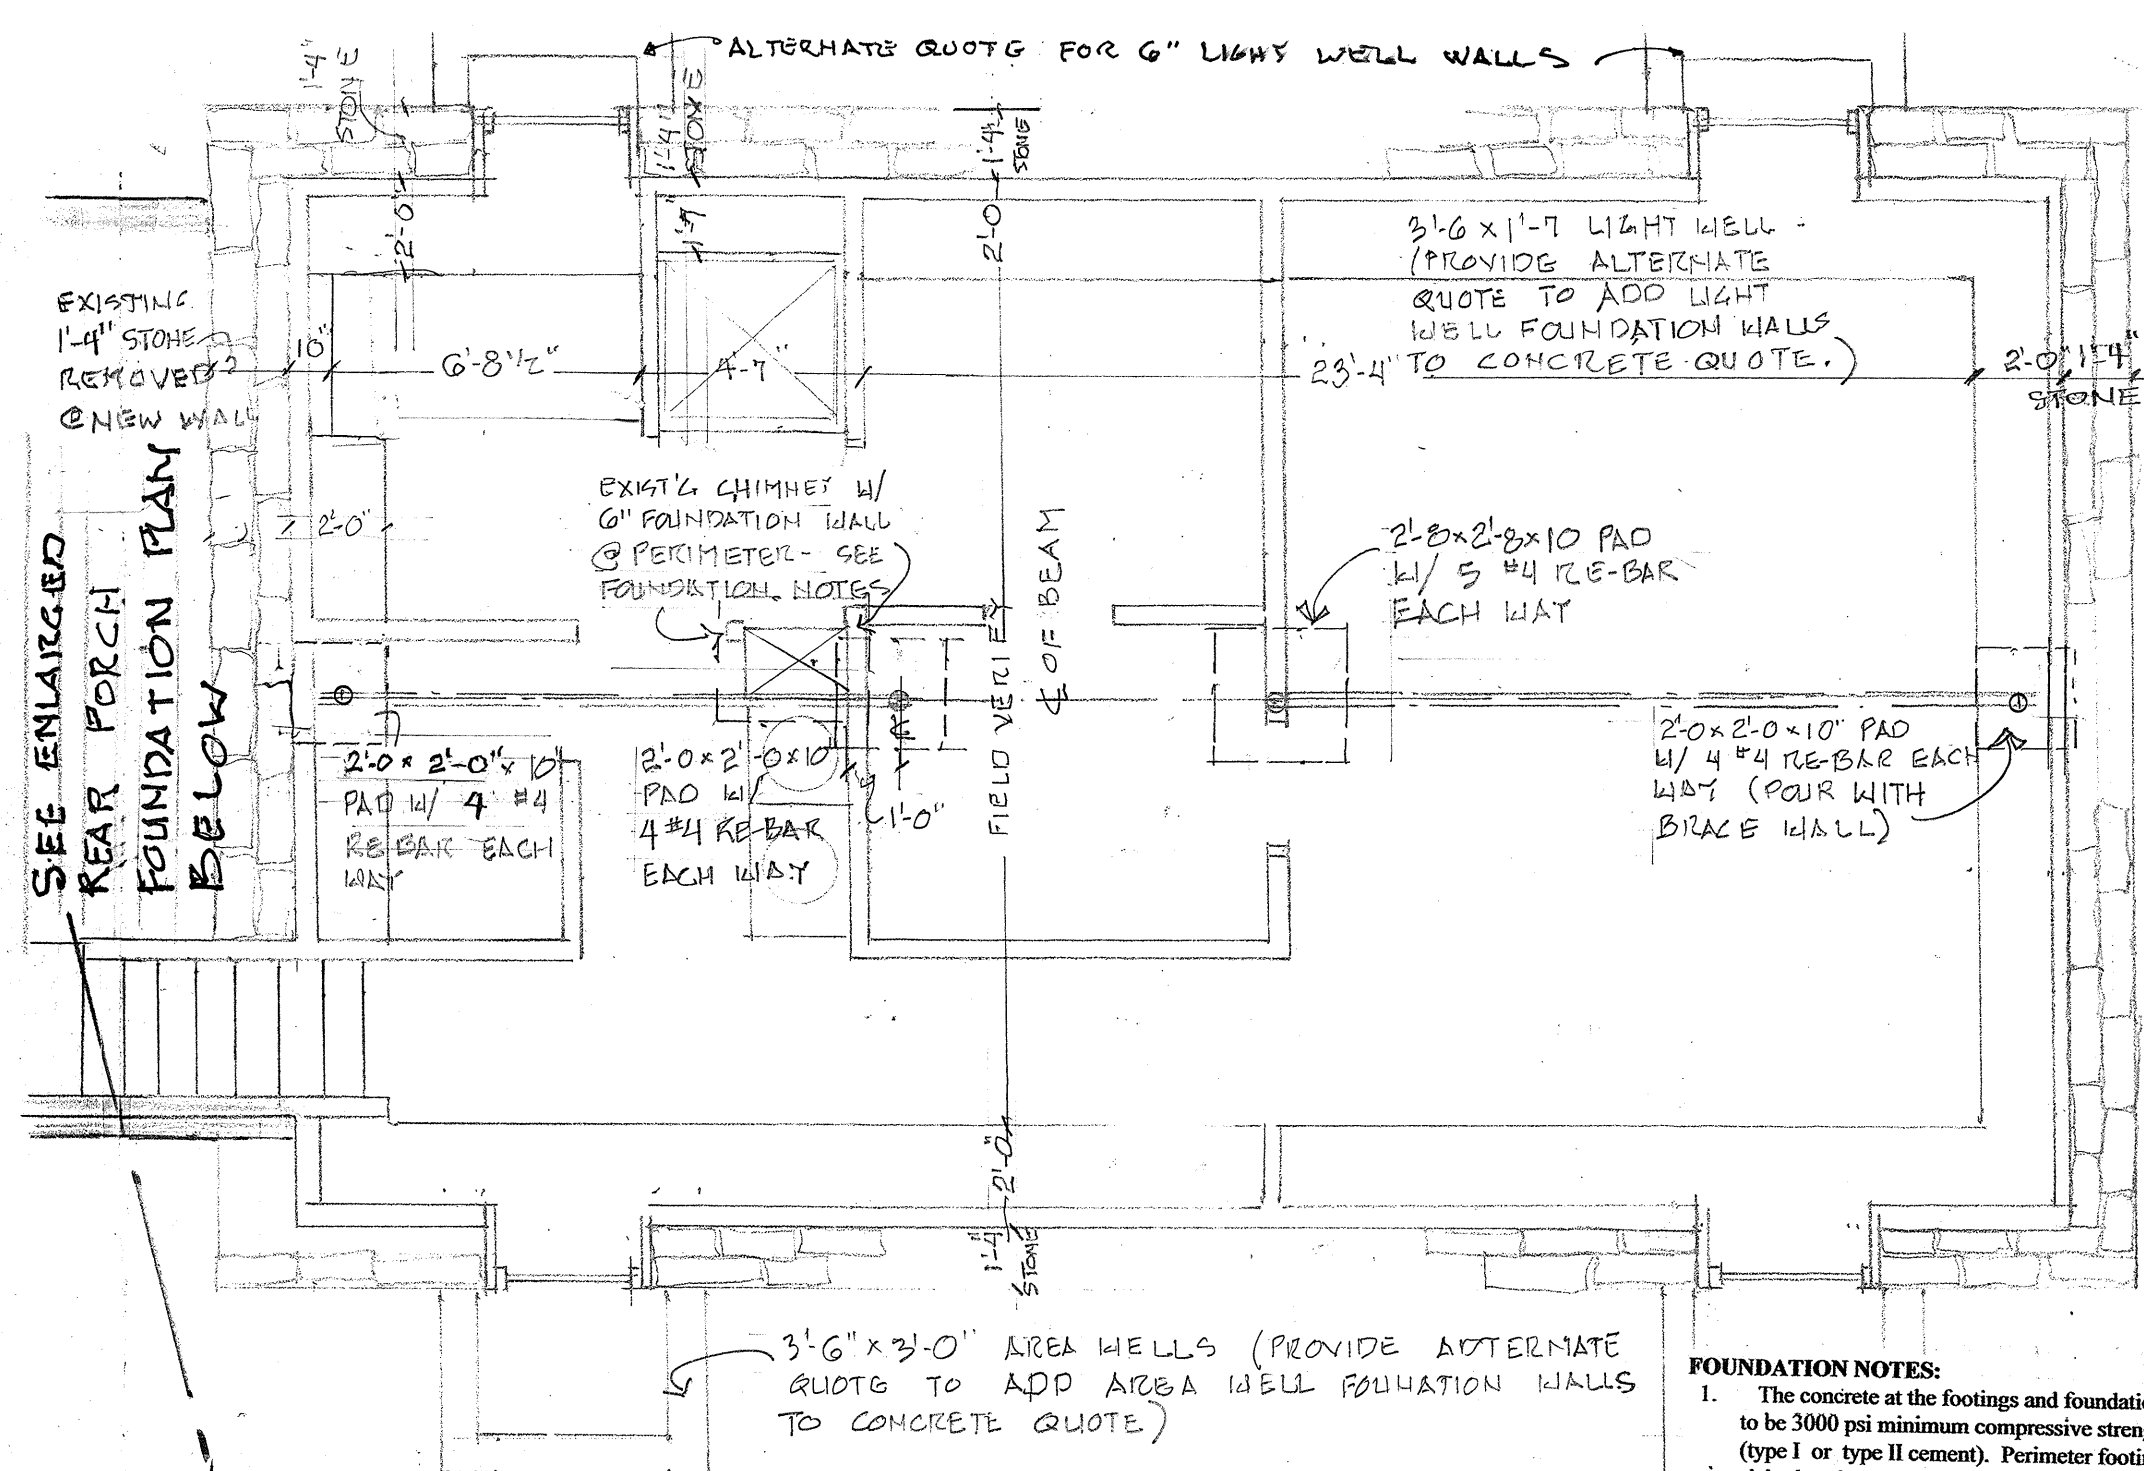 ALTERNATE QUOTE FOR 6" LIGHT WELL WALLS
1'-4"
STONE
1'-4"
STONE
1'-4"
STONE
2'-0"
1'-7"
2'-0
3'-6 x 1'-7 LIGHT WELL -
(PROVIDE ALTERNATE
QUOTE TO ADD LIGHT
WELL FOUNDATION WALLS
TO CONCRETE QUOTE.)
EXISTING
1'-4" STONE
REMOVED
@ NEW WALL
10"
6'-8 1/2"
4-7"
23'-4"
2'-0"
1'-4"
STONE
2'-0"
EXIST'G CHIMNEY W/
6" FOUNDATION WALL
@ PERIMETER - SEE
FOUNDATION NOTES
SEE ENLARGED
REAR PORCH
FOUNDATION PLAN
BELOW
FIELD VERIFY
℄ OF BEAM
2'-8x2'-8x10 PAD
W/ 5 #4 RE-BAR
EACH WAY
2'-0 x 2'-0" x 10"
PAD W/ 4 #4
RE-BAR EACH
WAY
2'-0 x 2'-0x10"
PAD W/
4 #4 RE-BAR
EACH WAY
1'-0"
2'-0x2'-0x10" PAD
W/ 4 #4 RE-BAR EACH
WAY (POUR WITH
BRACE WALL)
2'-0"
1'-4"
STONE
3'-6" x 3'-0" AREA WELLS (PROVIDE ALTERNATE
QUOTE TO ADD AREA WELL FOUNATION WALLS
TO CONCRETE QUOTE)
FOUNDATION NOTES:
1. The concrete at the footings and foundatio
to be 3000 psi minimum compressive streng
(type I or type II cement). Perimeter footin